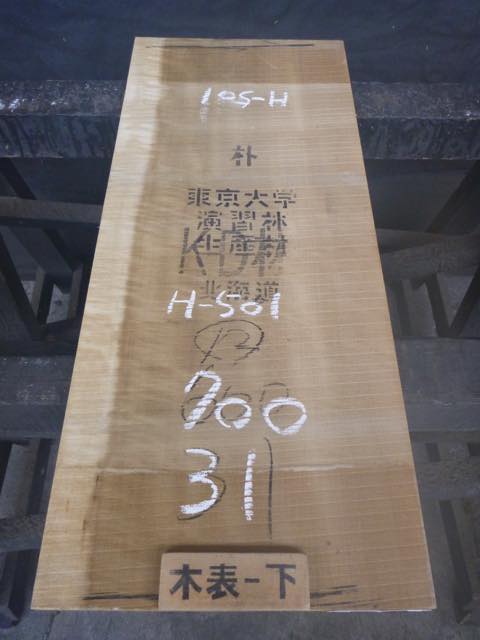 H-501
朴
東京大学
演習林
生産材
KD材
北海道
H-501
31
木表-下